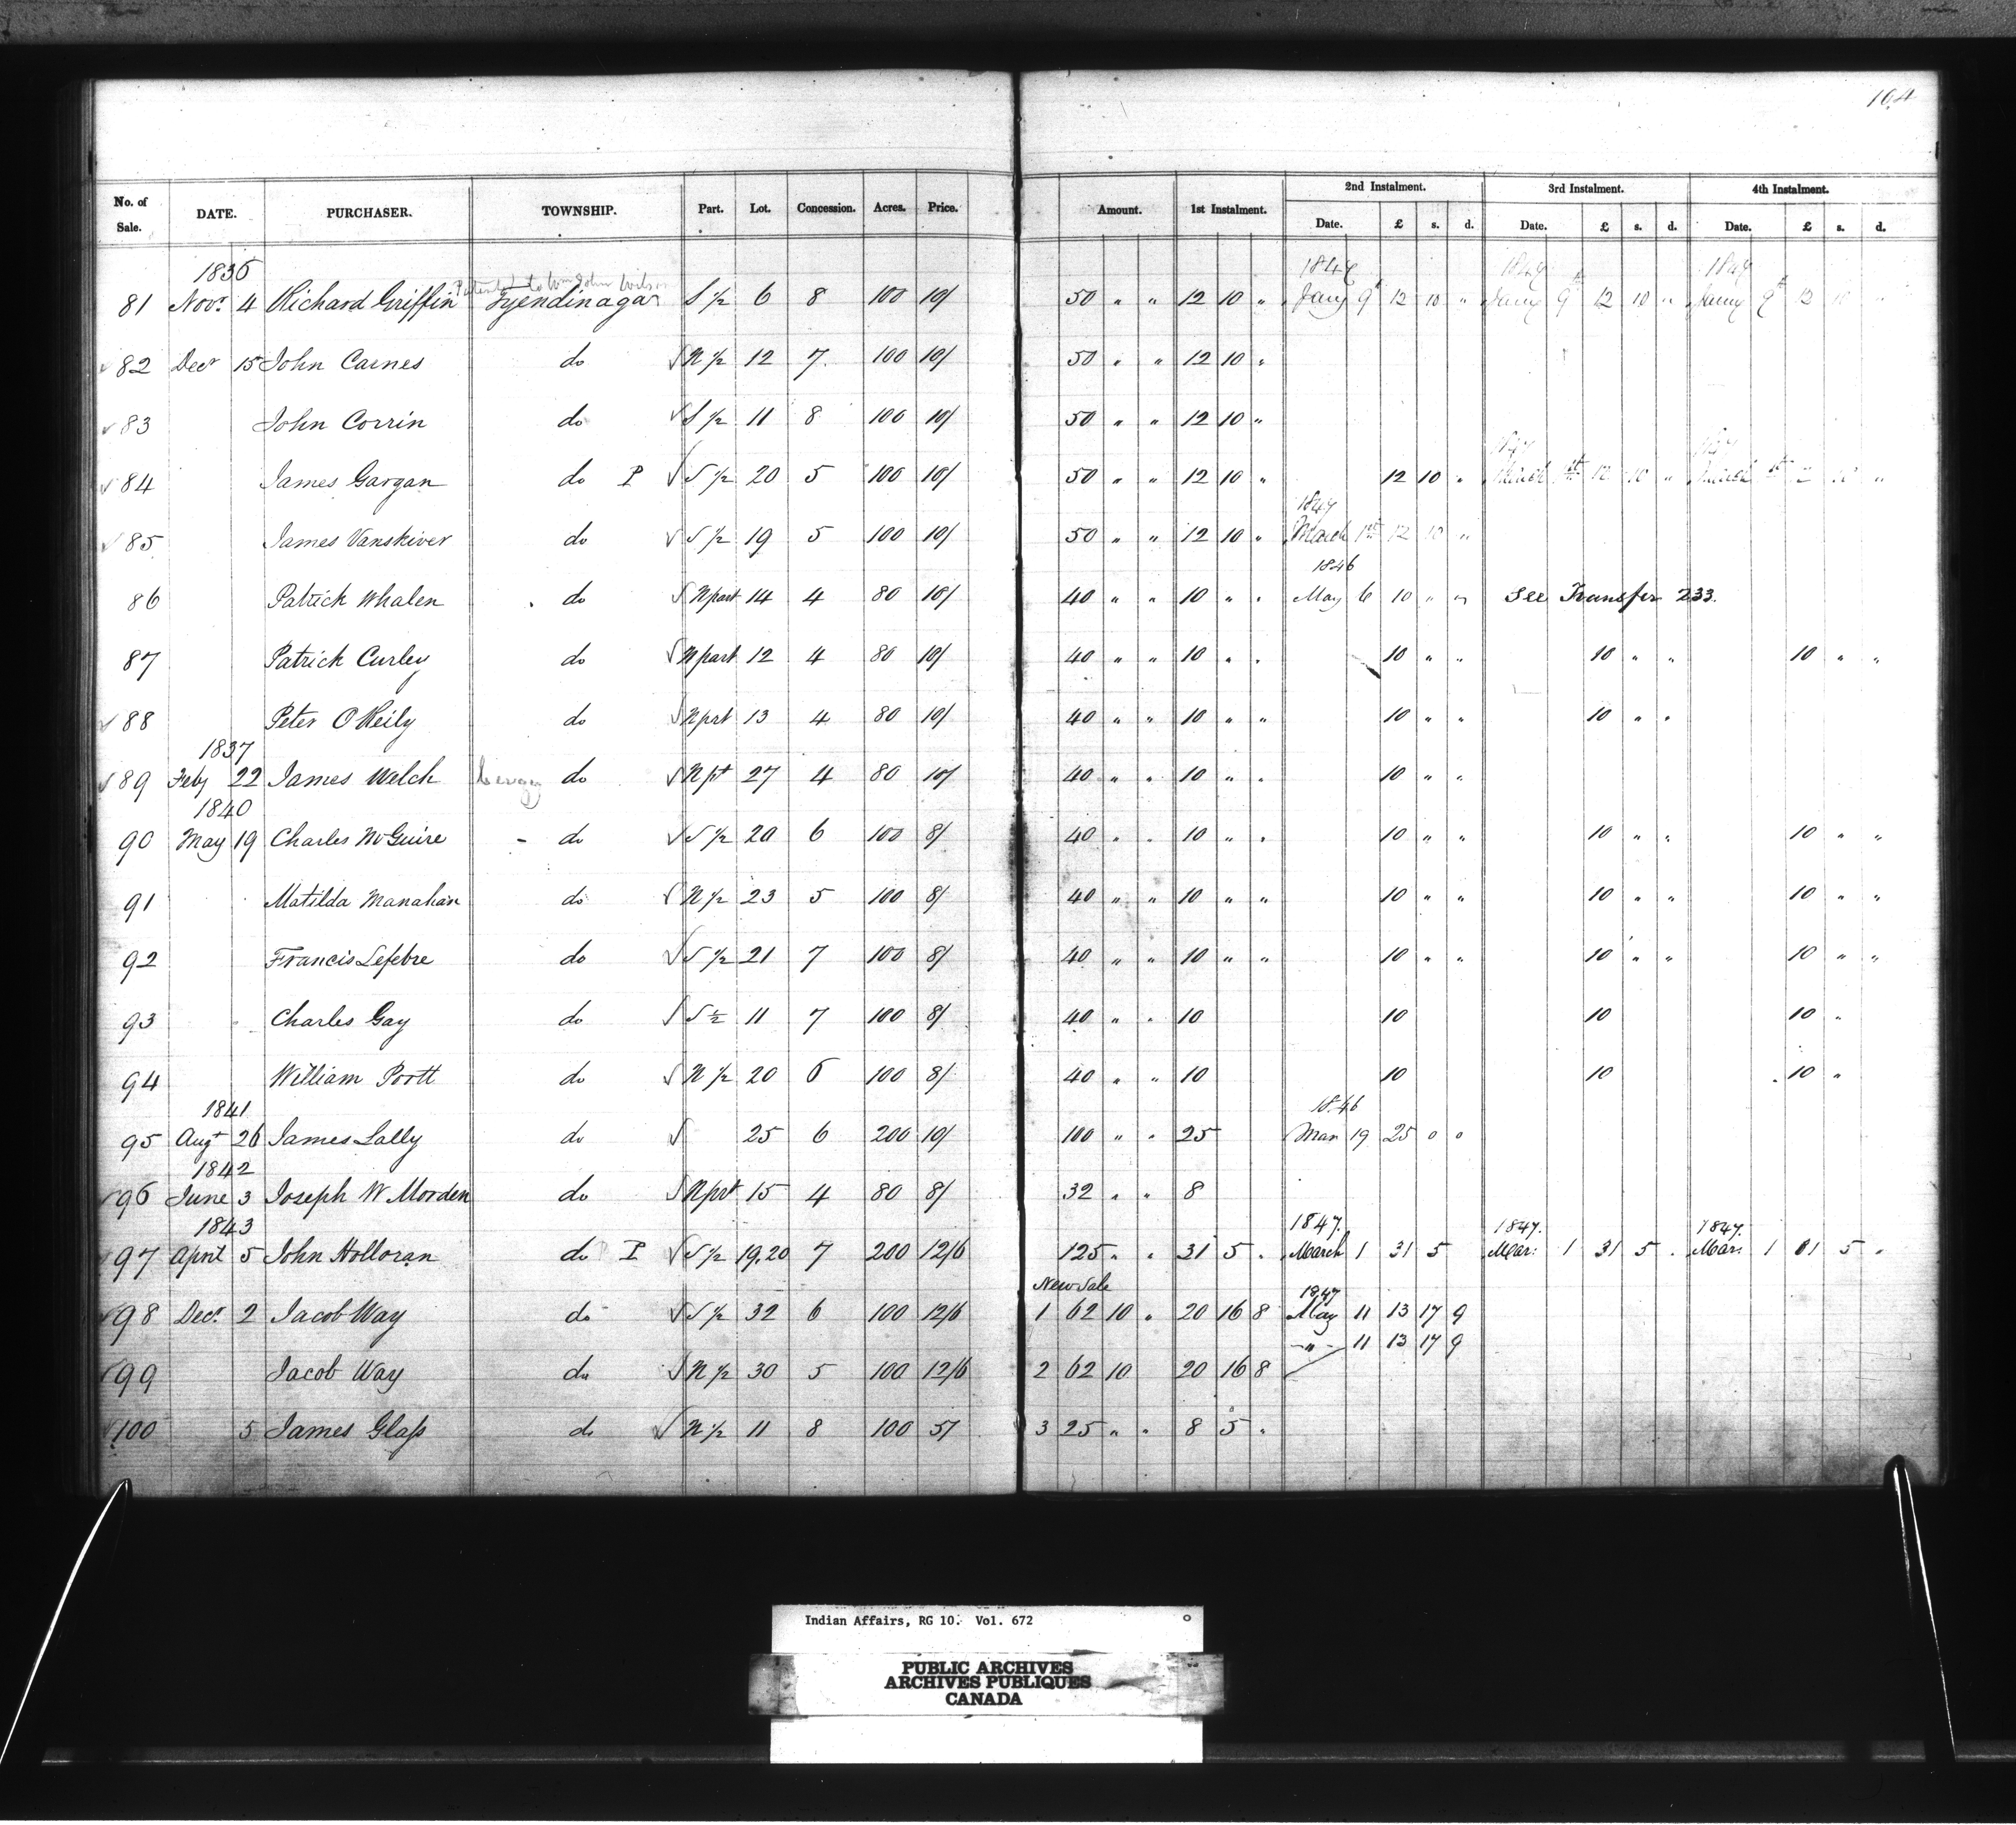 104
No. of Sale. DATE. PURCHASER. TOWNSHIP. Part. Lot. Concession. Acres. Price. Amount. 1st Instalment. 2nd Instalment. 3rd Instalment. 4th Instalment.
Date. £ s. d. Date. £ s. d. Date. £ s. d.
1836
Patented to Wm John Wilson
81 Novr. 4 Richard Griffin Tyendinaga S ½ 6 8 100 10/ 50 " " 12 10 " Jany 9th 12 10 " Jany 9th 12 10 " Jany 9th 12 10 "
82 Decr 15 John Carnes do √ N ½ 12 7. 100 10/ 50 " " 12 10 "
√ 83 John Corrin do √ S ½ 11 8 100 10/ 50 " " 12 10 "
√ 84 James Gargan do P √ S ½ 20 5 100 10/ 50 " " 12 10 " 12 10 " March 1st 12 10 " March 1st 10 "
1847
√ 85 James Vanskiver do √ S ½ 19 5 100 10/ 50 " " 12 10 " March 1st 12 10 "
1846
86 Patrick Whalen do √ N part 14 4 80 10/ 40 " " 10 " " May 6 10 " " See Transfer 233.
87 Patrick Curley do √ N part 12 4 80 10/ 40 " " 10 " " 10 " " 10 " " 10 " "
√ 88 Peter O Reily do √ N prt 13 4 80 10/ 40 " " 10 " " 10 " " 10 " "
1837
√ 89 Feby 22 James Welch do √ N pt 27 4 80 10/ 40 " " 10 " " 10 " "
1840
90 May 19 Charles McGuire - do √ S ½ 20 6 100 8/ 40 " " 10 " " 10 " " 10 " " 10 " "
91 Matilda Manahan do √ N ½ 23 5 100 8/ 40 " " 10 " " 10 " " 10 " " 10 " "
92 Francis Lefebre do √ S ½ 21 7 100 8/ 40 " " 10 " " 10 " " 10 " " 10 " "
93 Charles Gay do √ S ½ 11 7 100 8/ 40 " " 10 10 10 10 "
94 William Portt do √ N ½ 20 6 100 8/ 40 " " 10 10 10 10 "
1841 1846
95 Augt 26 James Lally do √ 25 6 200 10/ 100 " " 25 Mar 19 25 0 0
1842
√ 96 June 3 Joseph W Morden do √ N prt 15 4 80 8/ 32 " " 8
1843 1847. 1847. 1847.
√ 97 April 5 John Holloran do P √ S ½ 19,20 7 200 12/6 125 " " 31 5 " March 1 31 5 Mar: 1 31 5 " Mar: 1 31 5 "
New Sale 1847
√ 98 Decr. 2 Jacob Way do √ S ½ 32 6 100 12/6 1 62 10 " 20 16 8 May 11 13 17 9
- " - 11 13 17 9
√ 99 Jacob Way do √ N ½ 30 5 100 12/6 2 62 10 20 16 8
√ 100 5 James Glass do √ N ½ 11 8 100 5/ 3 25 " " 8 5 "
Indian Affairs, RG 10. Vol. 672
PUBLIC ARCHIVES
ARCHIVES PUBLIQUES
CANADA